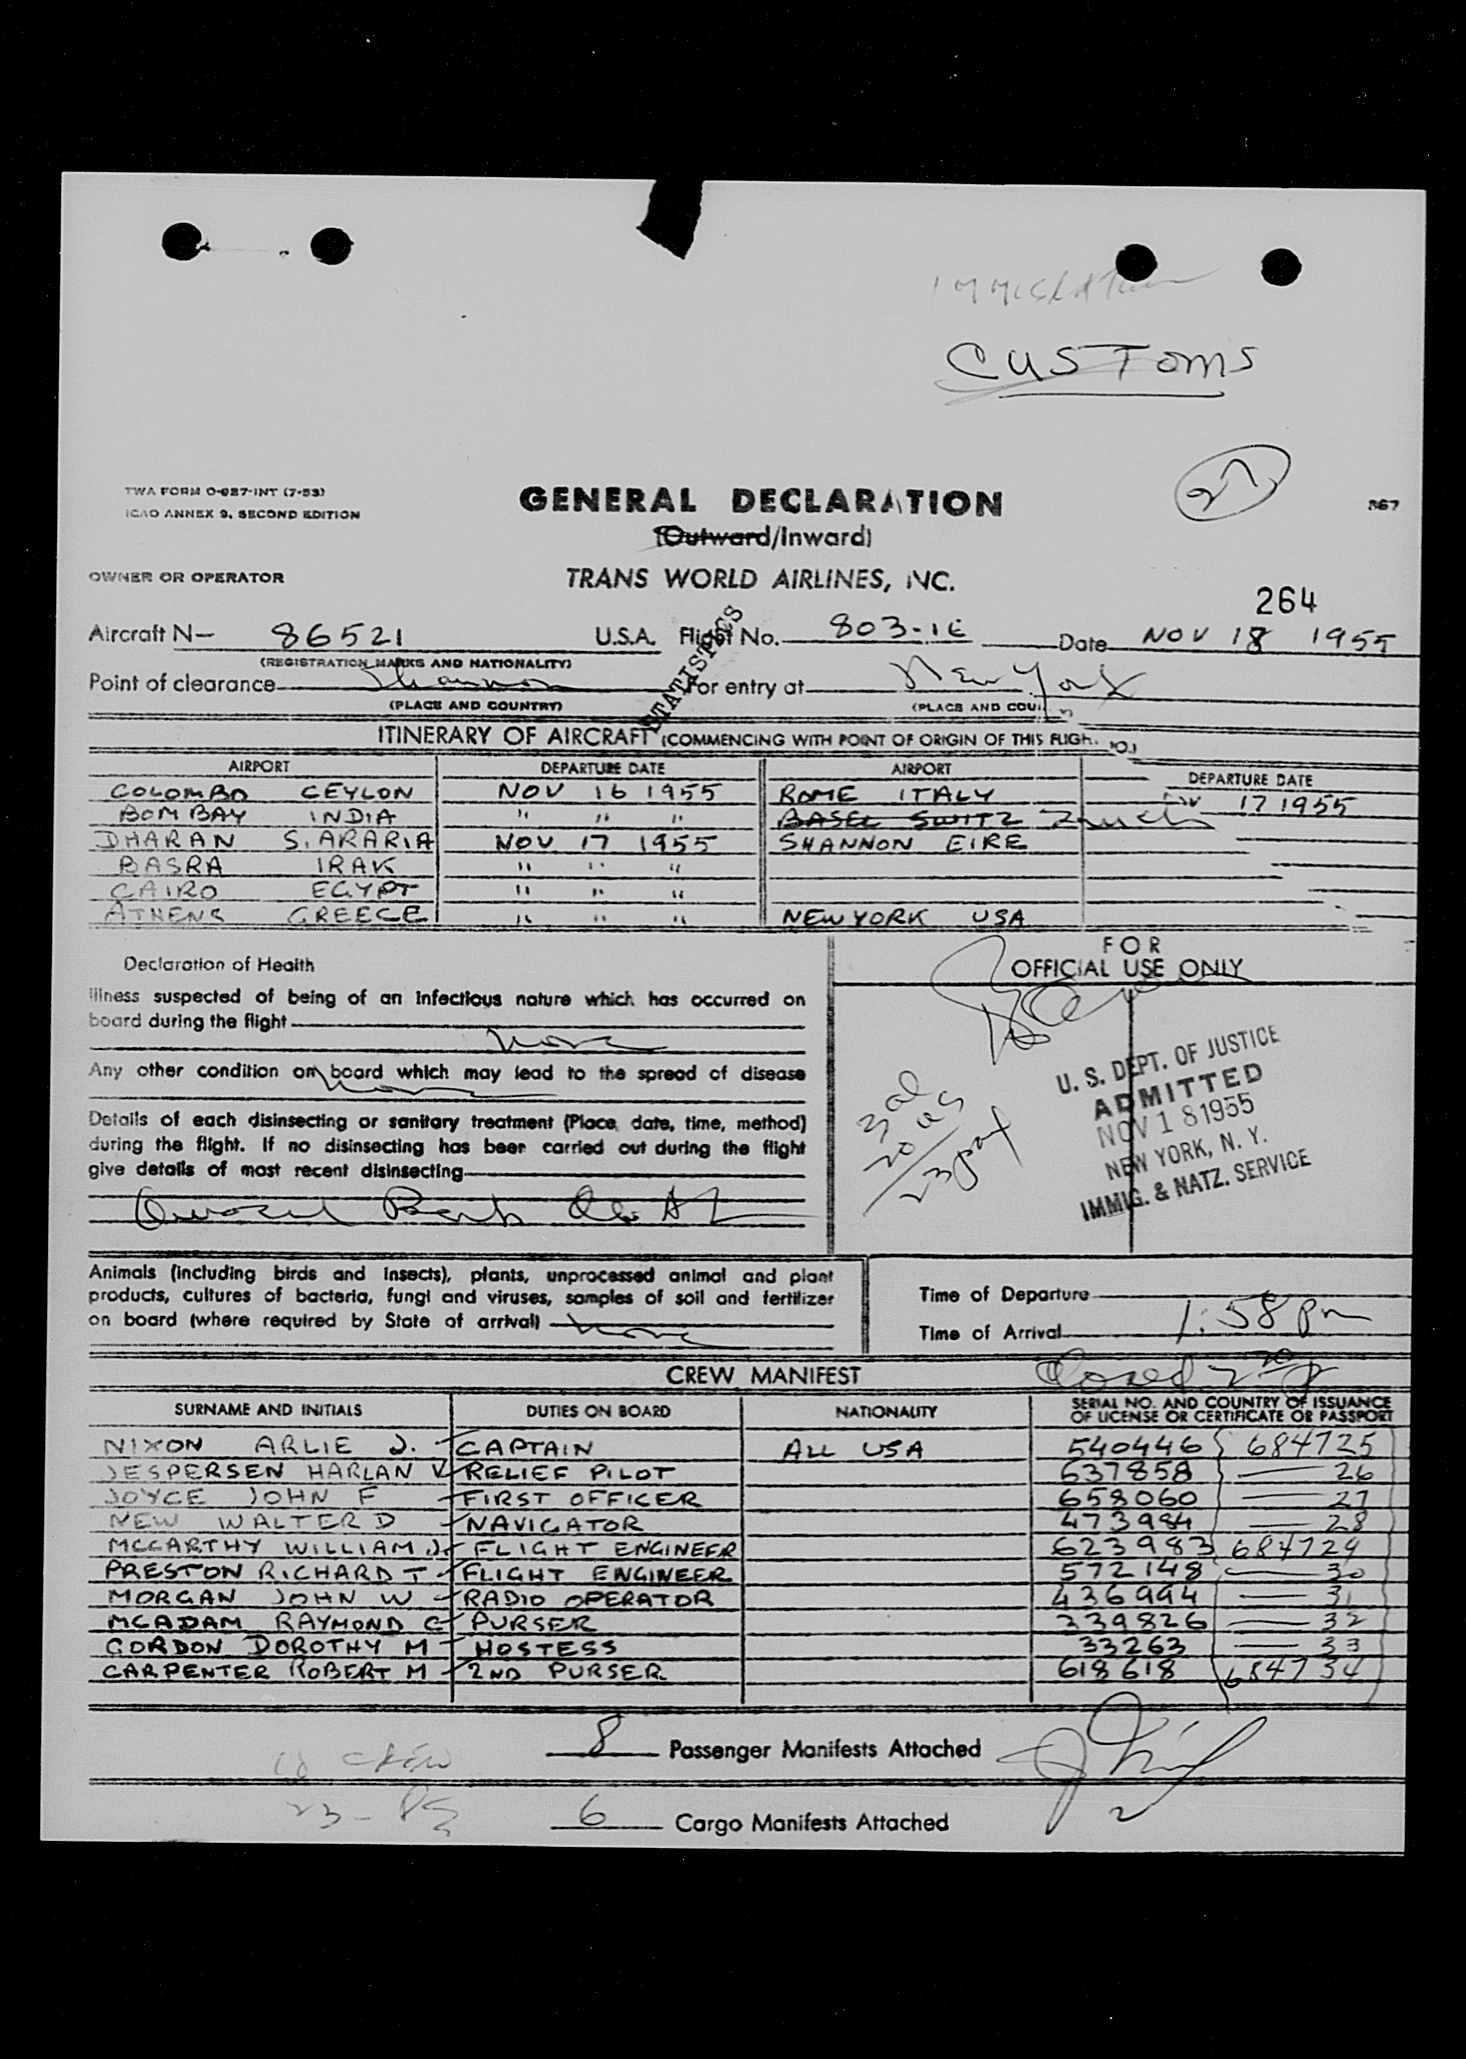 IMMIGRATION
CUSTOMS
27
TWA FORM O-927-INT (7-53)
ICAO ANNEX 9, SECOND EDITION
GENERAL DECLARATION
(Outward/Inward)
867
OWNER OR OPERATOR
TRANS WORLD AIRLINES, INC.
264
Aircraft N- 86521 U.S.A. Flight No. 803-16 Date NOV 18 1955
(REGISTRATION MARKS AND NATIONALITY)
STATISTICS
Point of clearance Shannon For entry at New York
(PLACE AND COUNTRY) (PLACE AND COU
ITINERARY OF AIRCRAFT (COMMENCING WITH POINT OF ORIGIN OF THIS FLIGH. NO.)
AIRPORT DEPARTURE DATE AIRPORT DEPARTURE DATE
COLOMBO CEYLON NOV 16 1955 ROME ITALY 17 1955
BOMBAY INDIA " " " BASEL SWITZ Zurich
DHARAN S. ARARIA NOV 17 1955 SHANNON EIRE
BASRA IRAK " " "
CAIRO EGYPT " " "
ATHENS GREECE " " " NEW YORK USA
Declaration of Health
FOR
OFFICIAL USE ONLY
Illness suspected of being of an infectious nature which has occurred on
board during the flight
None
Any other condition on board which may lead to the spread of disease
None
Details of each disinsecting or sanitary treatment (Place, date, time, method)
during the flight. If no disinsecting has been carried out during the flight
give details of most recent disinsecting
3 al
20 us
23 pax
U. S. DEPT. OF JUSTICE
ADMITTED
NOV 18 1955
NEW YORK, N. Y.
IMMIG. & NATZ. SERVICE
Animals (including birds and insects), plants, unprocessed animal and plant
products, cultures of bacteria, fungi and viruses, samples of soil and fertilizer
on board (where required by State of arrival) None
Time of Departure
Time of Arrival 1:58 pm
CREW MANIFEST Closed 2 20 p
SURNAME AND INITIALS DUTIES ON BOARD NATIONALITY SERIAL NO. AND COUNTRY OF ISSUANCE
OF LICENSE OR CERTIFICATE OR PASSPORT
NIXON ARLIE J. CAPTAIN ALL USA 540446 684725
JESPERSEN HARLAN V RELIEF PILOT 637858 26
JOYCE JOHN F FIRST OFFICER 658060 27
NEW WALTER D NAVIGATOR 473984 28
MCCARTHY WILLIAM J FLIGHT ENGINEER 623983 684729
PRESTON RICHARD T FLIGHT ENGINEER 572148 30
MORGAN JOHN W RADIO OPERATOR 436994 31
MCADAM RAYMOND C PURSER 339826 32
GORDON DOROTHY M HOSTESS 33263 33
CARPENTER ROBERT M 2ND PURSER 618618 684734
8 Passenger Manifests Attached
10 crew
23 -
6 Cargo Manifests Attached